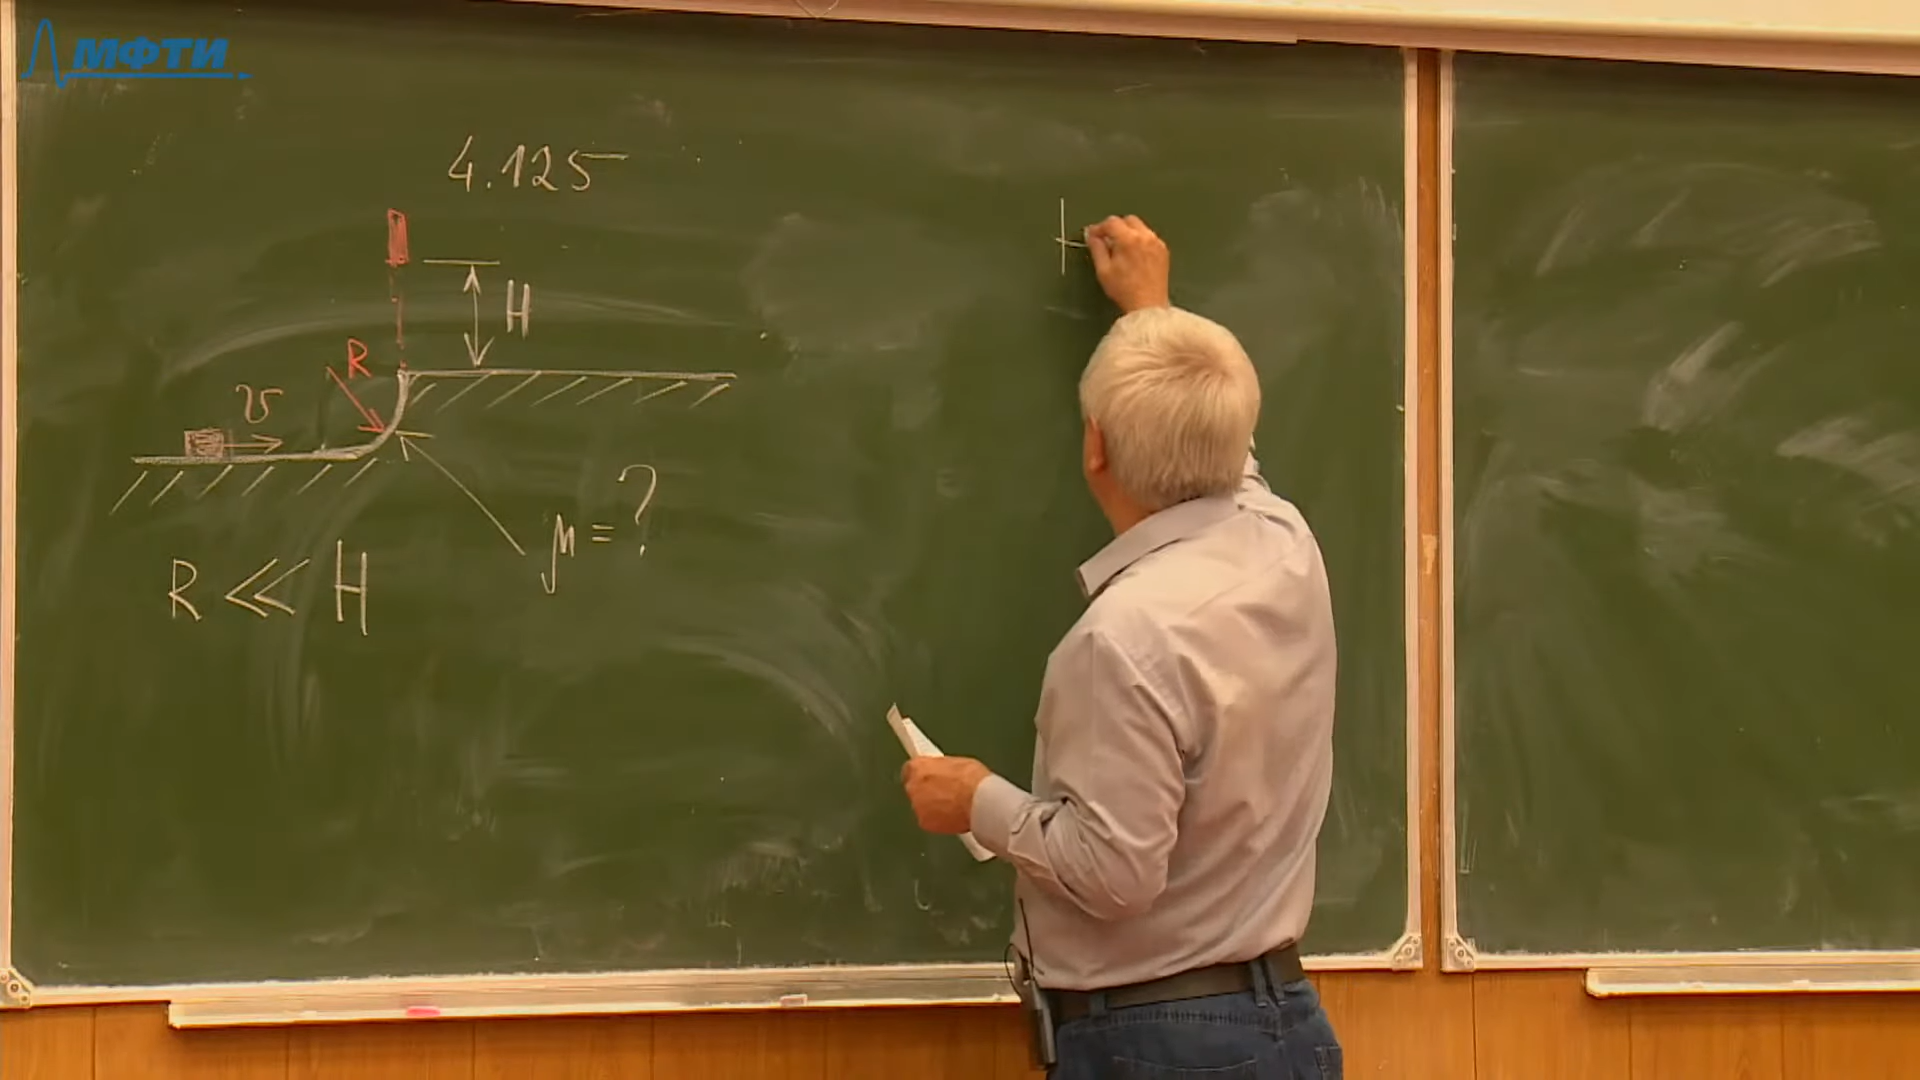 МФТИ
4.125
H
R
v
μ = ?
R << H
H